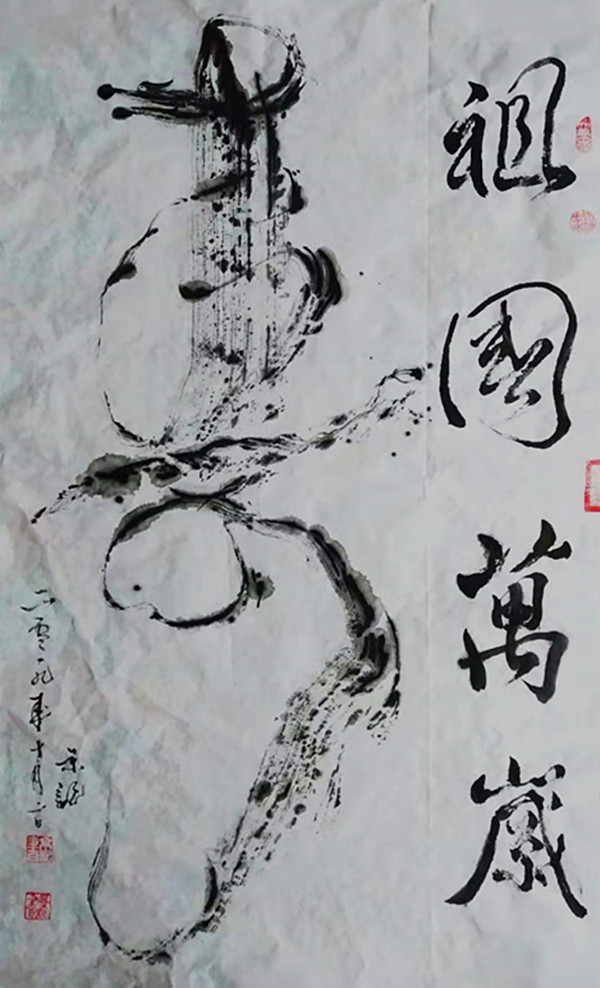 祖國萬歲
壽
二零一九年十月一日